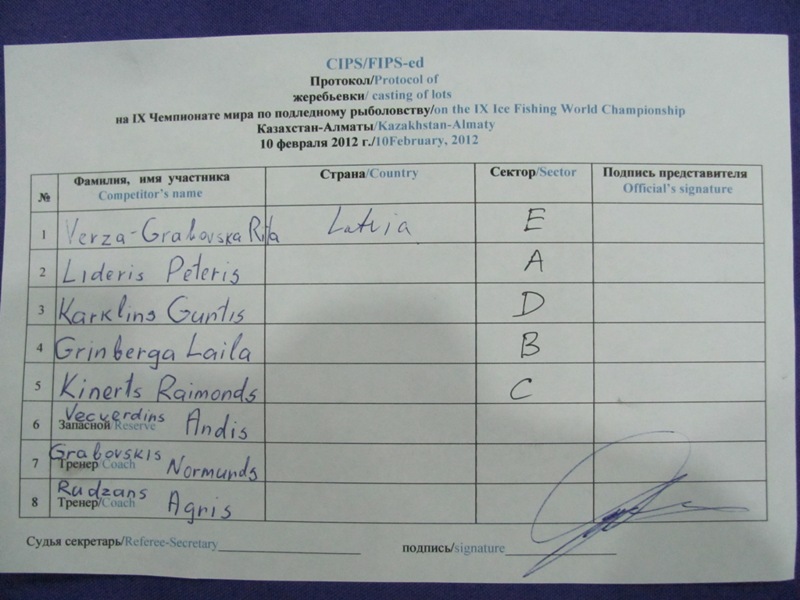 CIPS/FIPS-ed
Протокол/Protocol of
жеребьевки/ casting of lots
на IX Чемпионате мира по подледному рыболовству/on the IX Ice Fishing World Championship
Казахстан-Алматы/Kazakhstan-Almaty
10 февраля 2012 г./10February, 2012
№ Фамилия, имя участника Страна/Country Сектор/Sector Подпись представителя
Competitor's name Official's signature
1 Verza-Grabovska Rita Latvia E
2 Lideris Peteris A
3 Karklins Guntis D
4 Grinberga Laila B
5 Kinerts Raimonds C
Vecverdins
6 Запасной Reserve Andis
Grabovskis
7 Тренер/Coach Normunds
Rudzans
8 Тренер/Coach Agris
Судья секретарь/Referee-Secretary подпись/signature